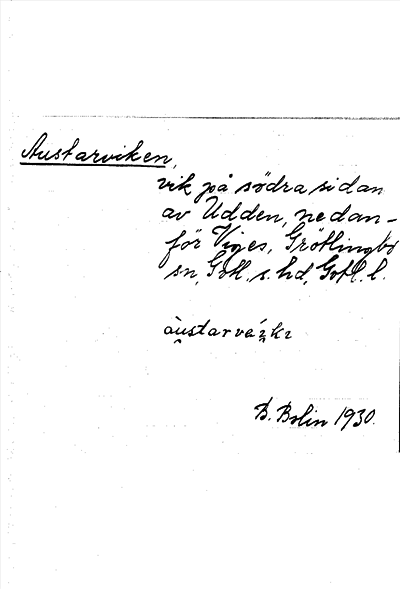 Austarviken,
vik på södra sidan
av Udden, nedan-
för Viges, Grötlingbo
sn, Gotl. s. hd, Gotl. l.
B. Bolin 1930.